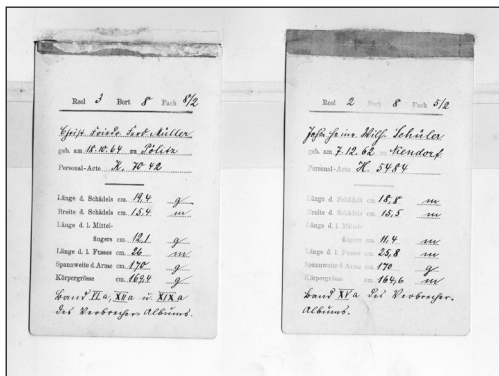 Real 3 Bort 8 Fach 8/2
Christ. Friedr. Ferd. Müller
geb. am 18.10.64 zu Pölitz
Personal-Acte K. 70 42
Länge d. Schädels cm. 19,4 g
Breite d. Schädels cm. 15,4 m
Länge d. l. Mittel-
fingers cm. 12,1 g
Länge d. l. Fusses cm. 26 m
Spannweite d. Arme cm. 174 g
Körpergrösse cm. 169,4 g
Band VIa, XIIa u. XIXa
des Verbrecher-
Albums.
Real 2 Bort 8 Fach 5/2
Johs. Heinr. Wilh. Schüler
geb. am 7.12.62 zu
Personal-Acte H. 5484
Länge d. Schädels cm. 18,8 m
Breite d. Schädels cm. 15,5 m
Länge d. l. Mittel-
fingers cm. 11,4 m
Länge d. l. Fusses cm. 25,8 m
Spannweite d. Arme cm. 170 g
Körpergrösse cm. 164,6 m
Band XVa des Verbrecher-
Albums.